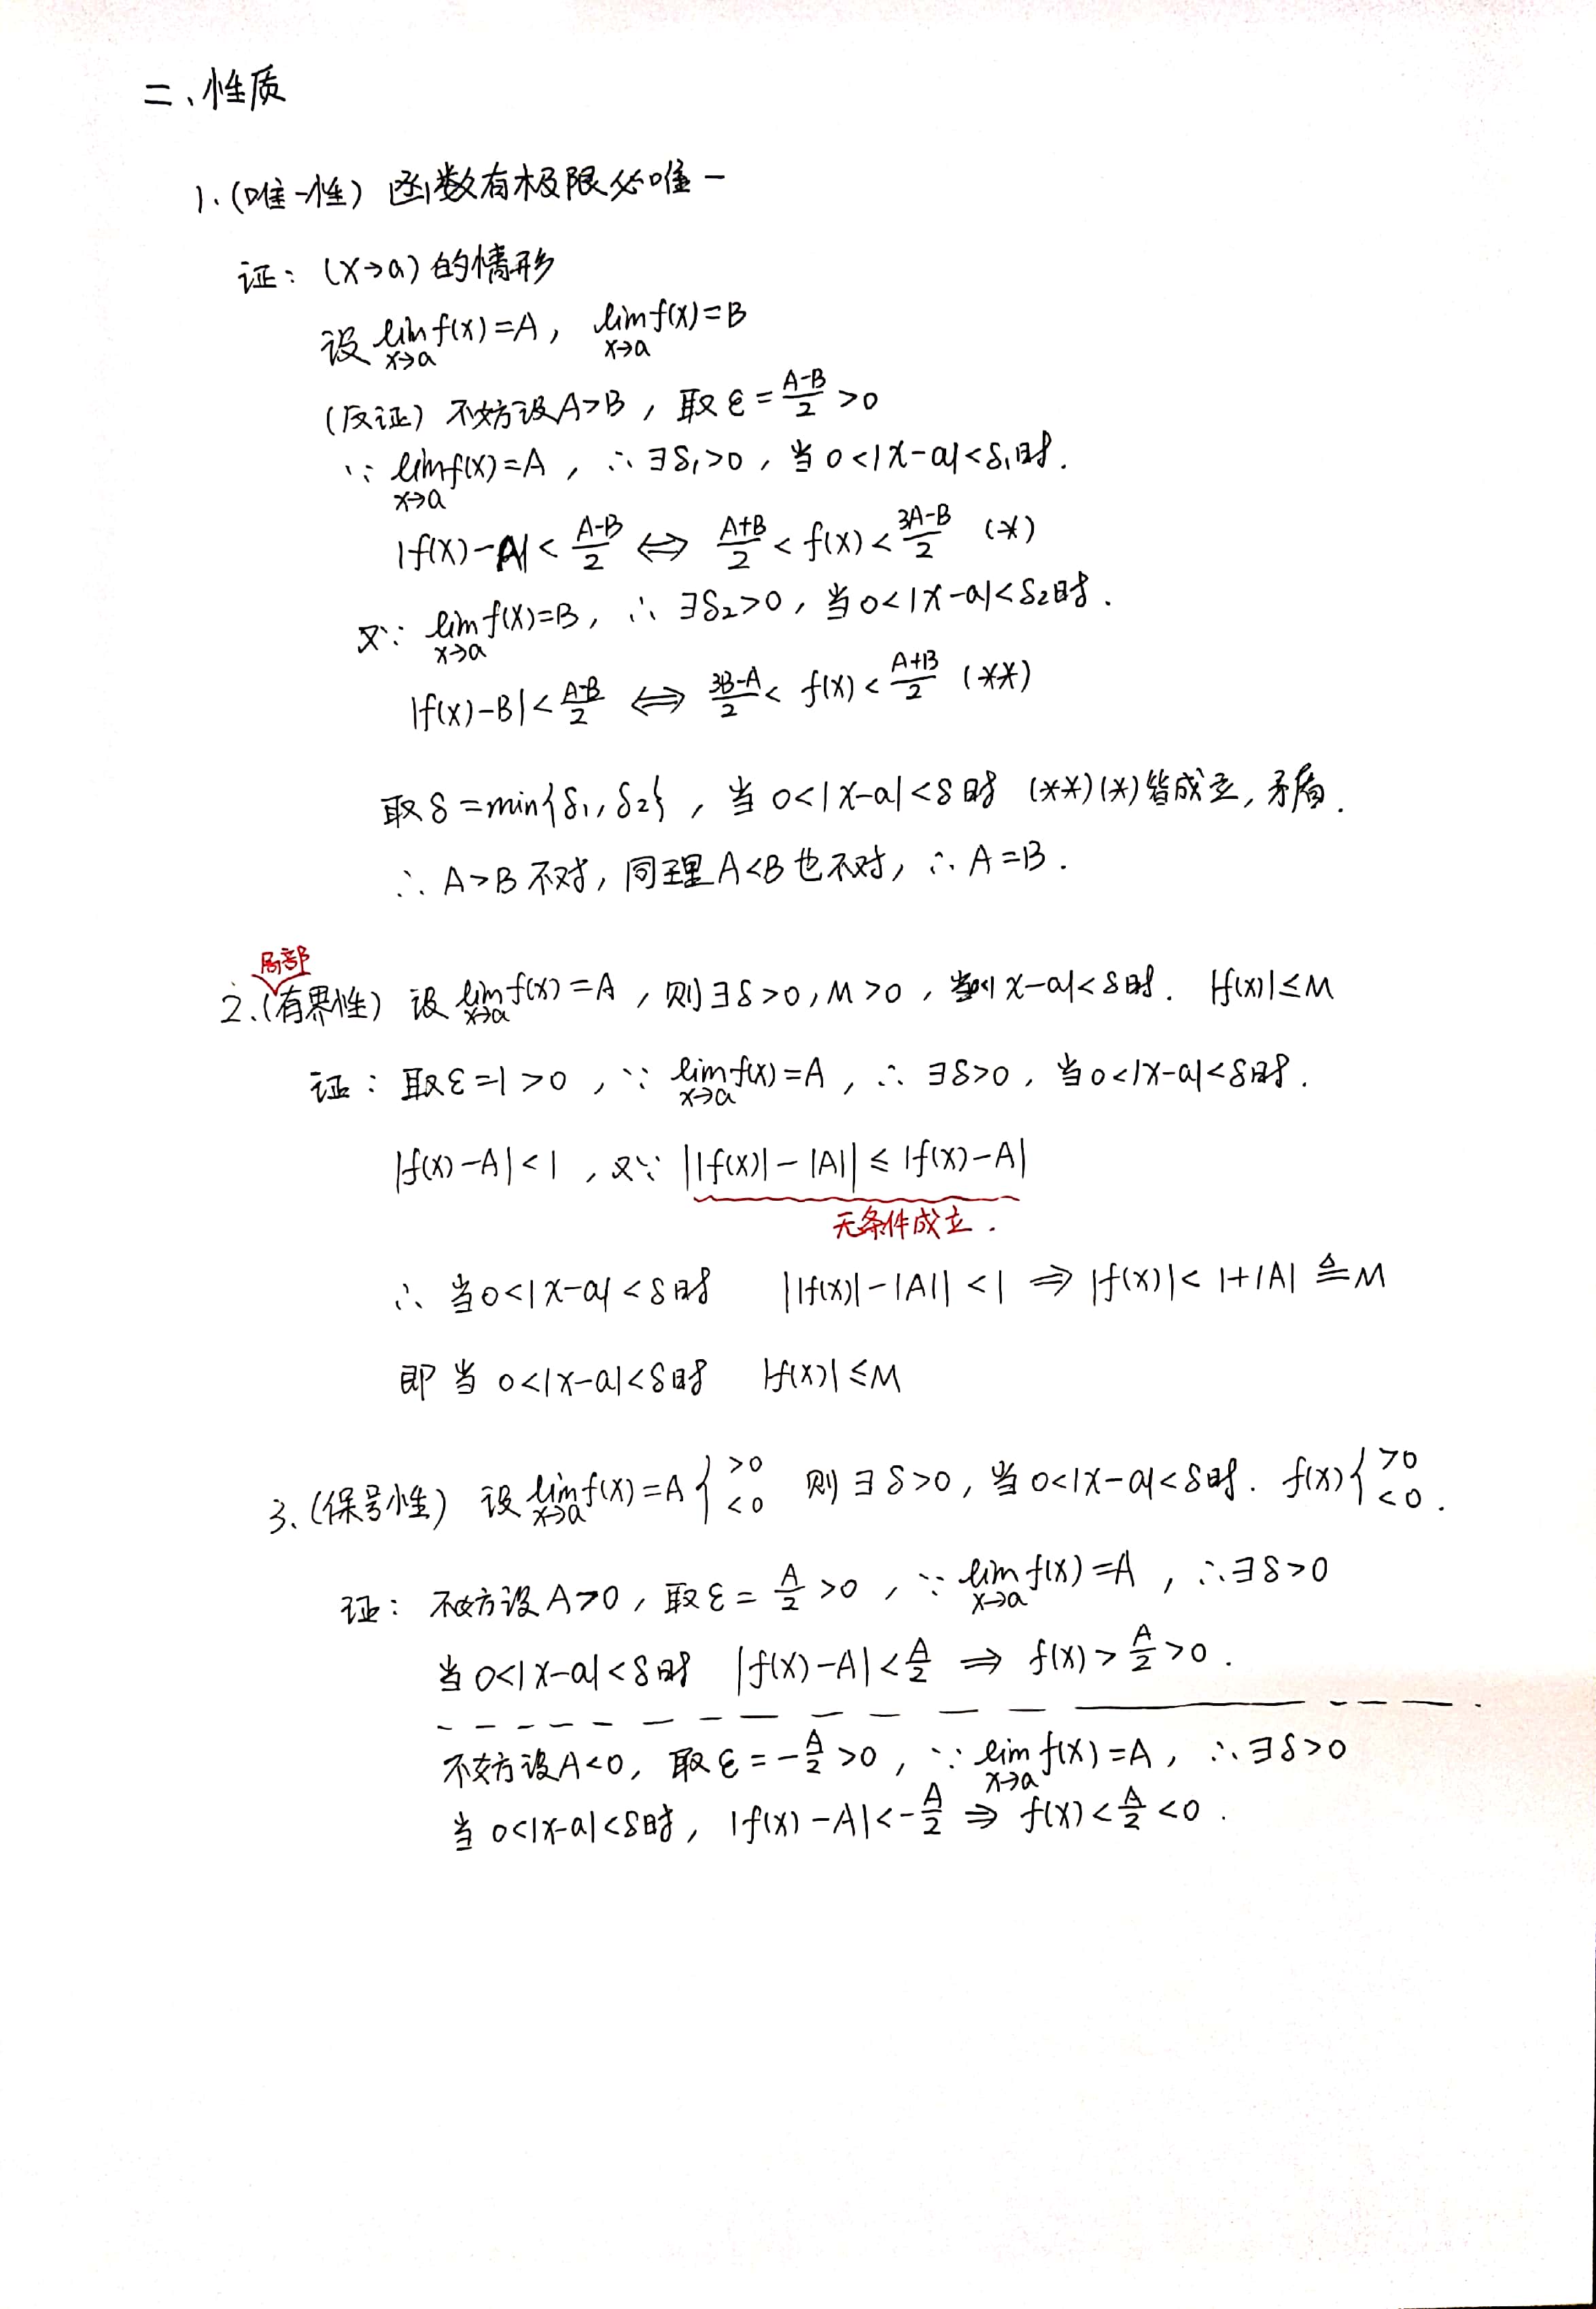 二、性质
1.(唯一性) 函数有极限必唯一
证：(x→a)的情形
设 lim_{x→a} f(x)=A， lim_{x→a} f(x)=B
(反证) 不妨设A>B，取 ε=\frac{A-B}{2}>0
∵ lim_{x→a} f(x)=A，∴ ∃δ₁>0，当 0<|x-a|<δ₁时.
|f(x)-A|<\frac{A-B}{2} ⟺ \frac{A+B}{2}<f(x)<\frac{3A-B}{2} (*)
又∵ lim_{x→a} f(x)=B，∴ ∃δ₂>0，当0<|x-a|<δ₂时.
|f(x)-B|<\frac{A-B}{2} ⟺ \frac{3B-A}{2}<f(x)<\frac{A+B}{2} (**)
取δ=min{δ₁,δ₂}，当 0<|x-a|<δ时 (**)(*)皆成立，矛盾.
∴ A>B不对，同理A<B也不对，∴ A=B.
局部
2.(有界性) 设 lim_{x→a} f(x)=A，则∃δ>0,M>0，当0<|x-a|<δ时. |f(x)|≤M
证：取ε=1>0，∵ lim_{x→a} f(x)=A，∴ ∃δ>0，当0<|x-a|<δ时.
|f(x)-A|<1，又∵ ||f(x)|-|A||≤|f(x)-A|
无条件成立.
∴ 当0<|x-a|<δ时 ||f(x)|-|A||<1 ⇒ |f(x)|<1+|A|≜M
即当 0<|x-a|<δ时 |f(x)|≤M
3.(保号性) 设 lim_{x→a} f(x)=A{>0 <0 则∃δ>0，当0<|x-a|<δ时. f(x){>0 <0.
证：不妨设A>0，取ε=\frac{A}{2}>0，∵ lim_{x→a} f(x)=A，∴∃δ>0
当0<|x-a|<δ时 |f(x)-A|<\frac{A}{2} ⇒ f(x)>\frac{A}{2}>0.
不妨设A<0，取ε=-\frac{A}{2}>0，∵ lim_{x→a} f(x)=A，∴∃δ>0
当0<|x-a|<δ时，|f(x)-A|<-\frac{A}{2} ⇒ f(x)<\frac{A}{2}<0.